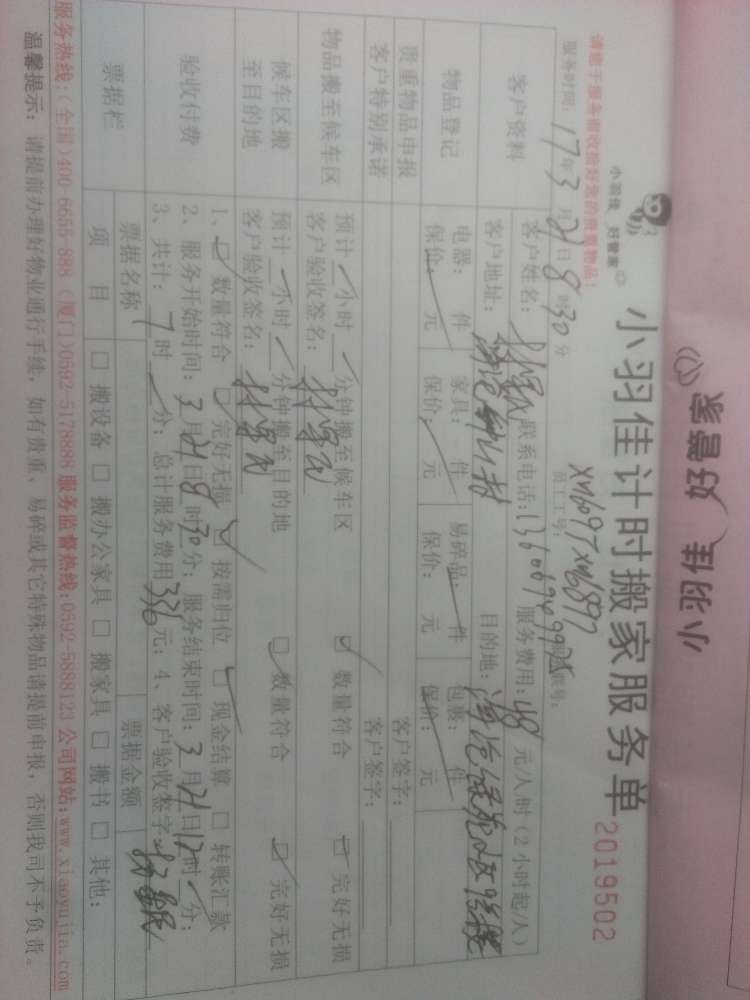 小羽佳 好管家
小羽佳 好管家
小羽佳计时搬家服务单
2019502
请您于服务前收拾好您的贵重物品!
服务时间: 17年3月21日8时30分
员工工号: XM6097XM6897
客户资料
客户姓名: 联系电话: 服务费用: 48 元/人时(2小时起/人)
客户地址: 目的地:
物品登记
电器: 件 家具: 件 易碎品: 件 包裹: 件
保价: 元 保价: 元 保价: 元 保价: 元
贵重物品申报 客户签字:
客户特别承诺 客户签字:
物品搬至候车区
预计 小时 分钟搬至候车区 数量符合 完好无损
客户验收签名:
候车区搬至目的地
预计 小时 分钟搬至目的地 数量符合 完好无损
客户验收签名:
验收付费
1、 数量符合 完好无损 按需归位 现金结算 转账汇款
2、服务开始时间: 3月21日8时30分; 服务结束时间: 3月21日12时 分;
3、共计: 7时 分; 总计服务费用336元; 4、客户验收签字:
票据栏
票据名称 票据金额
项目 搬设备 搬办公家具 搬家具 搬书 其他:
服务热线:(全国)400-6655-888 (厦门)0592-5178888 服务监督热线:0592-5888123 公司网站:www.xiaoyujia.com
温馨提示: 请提前办理好物业通行手续, 如有贵重、易碎或其它特殊物品请提前申报, 否则我司不予负责。